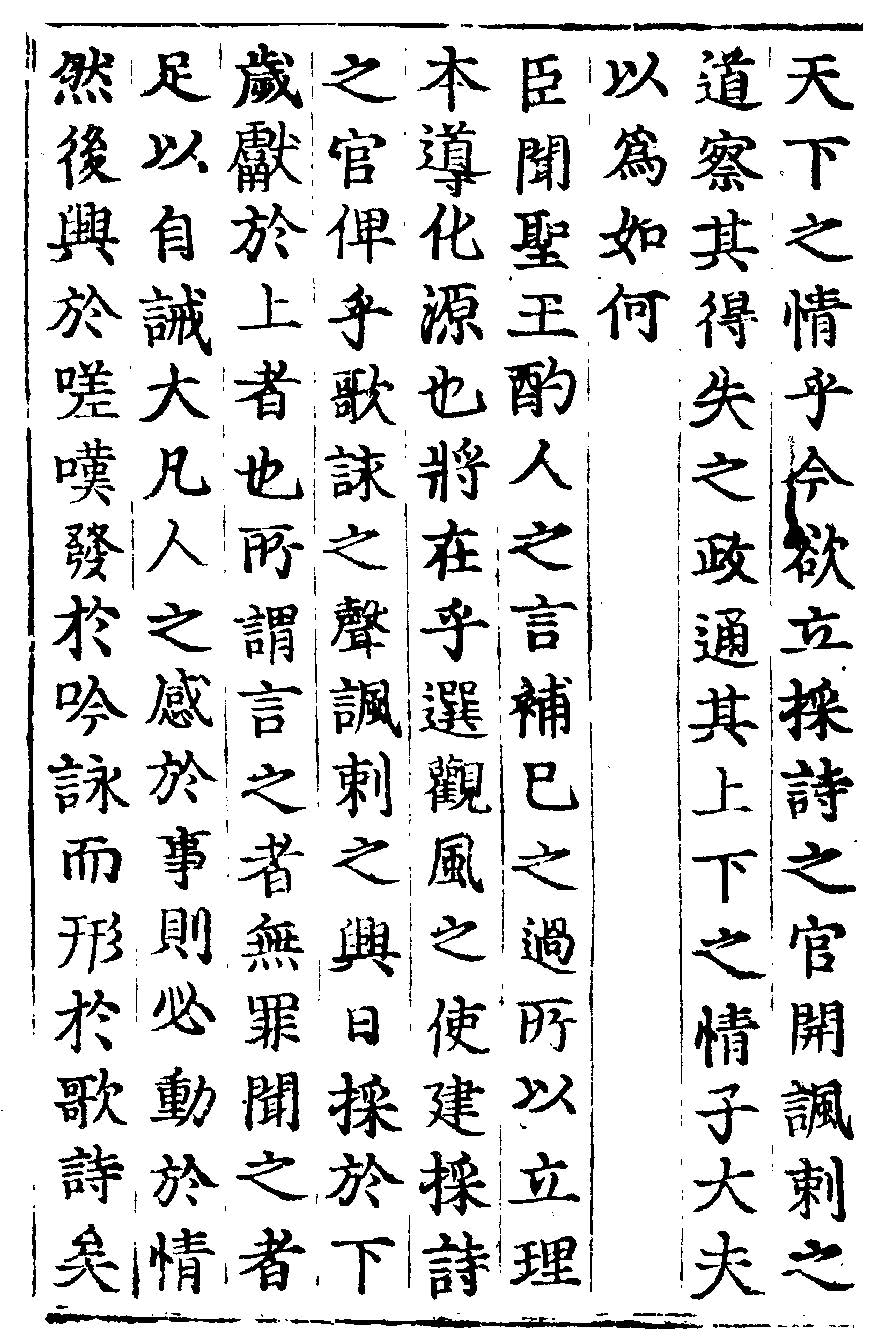 天下之情乎今欲立採詩之官開諷刺之
道察其得失之政通其上下之情子大夫
以爲如何
臣聞聖王酌人之言補已之過所以立理
本導化源也將在乎選觀風之使建採詩
之官俾乎歌誎之聲諷刺之興日採於下
歲獻於上者也所謂言之者無罪聞之者
足以自誡大凡人之感於事則必動於情
然後興於嗟嘆發於吟詠而形於歌詩矣